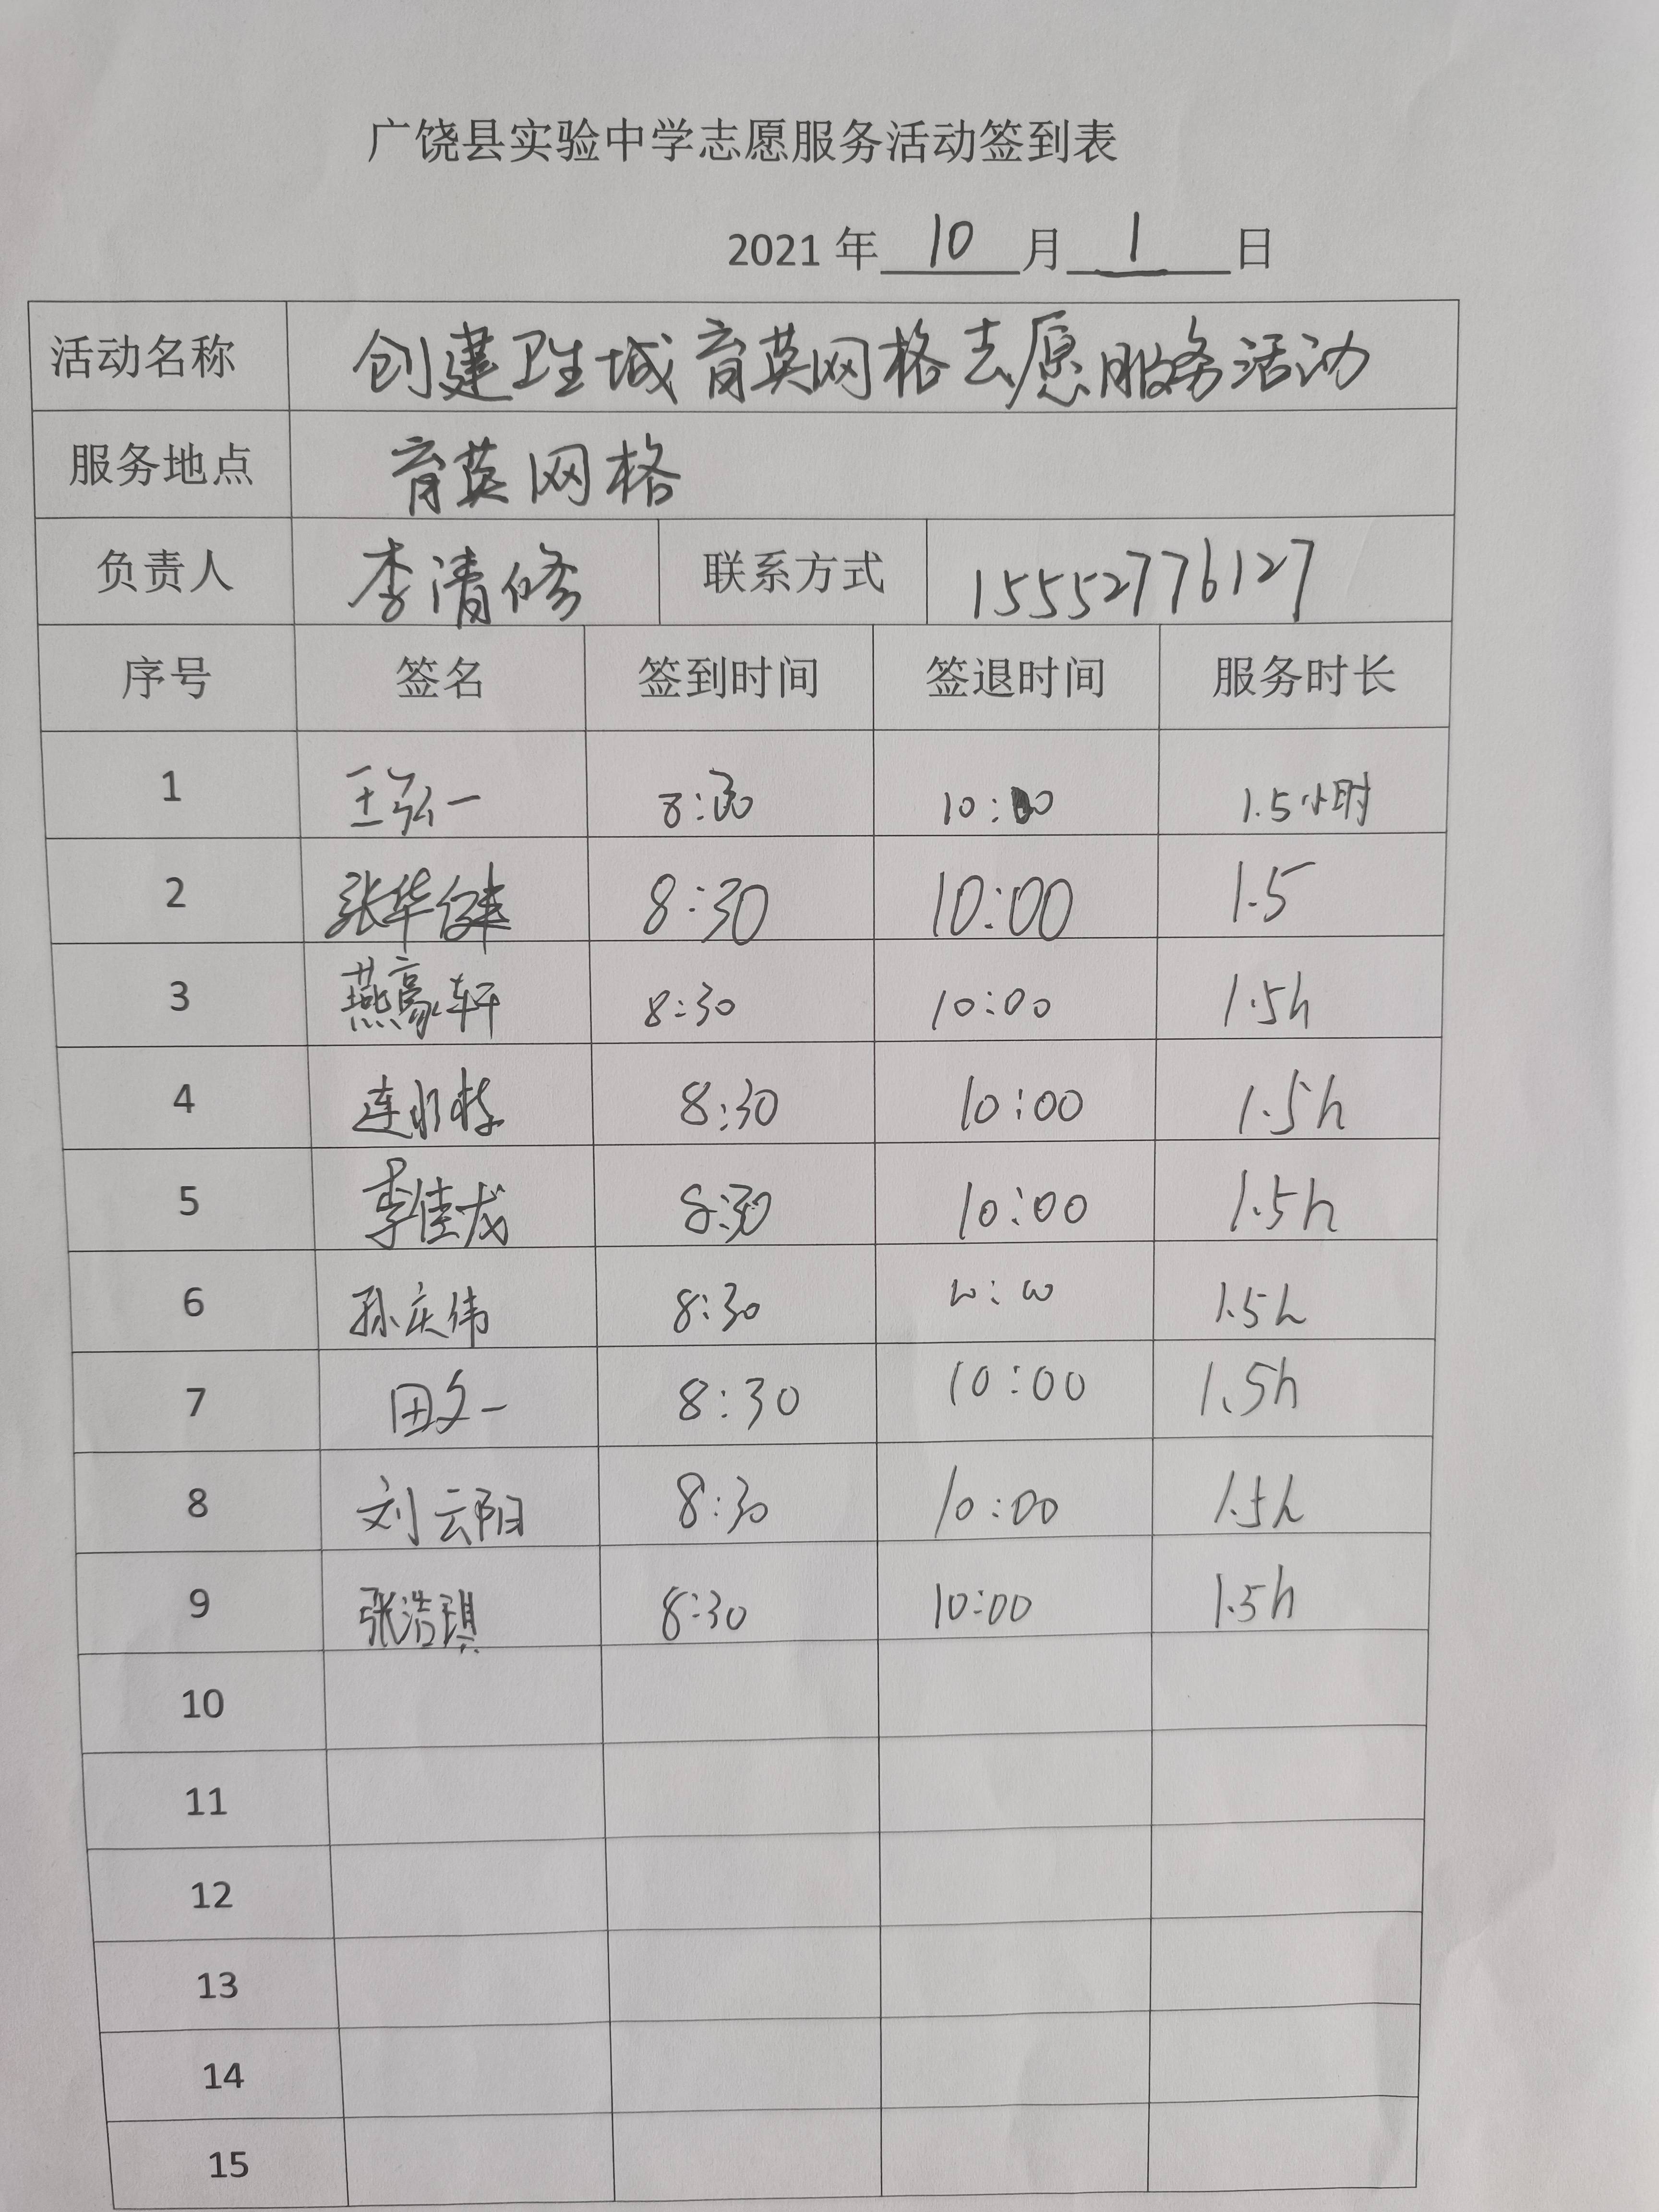 广饶县实验中学志愿服务活动签到表
2021 年 10 月 1 日
活动名称 创建卫生城育英网格志愿服务活动
服务地点 育英网格
负责人 李清修 联系方式 15552776127
序号 签名 签到时间 签退时间 服务时长
1 王弘一 8:30 10:00 1.5小时
2 张华健 8:30 10:00 1.5
3 燕豪轩 8:30 10:00 1.5h
4 连 8:30 10:00 1.5h
5 李佳龙 8:30 10:00 1.5h
6 孙庆伟 8:30 10:00 1.5h
7 田文一 8:30 10:00 1.5h
8 刘云阳 8:30 10:00 1.5h
9 张浩琪 8:30 10:00 1.5h
10
11
12
13
14
15